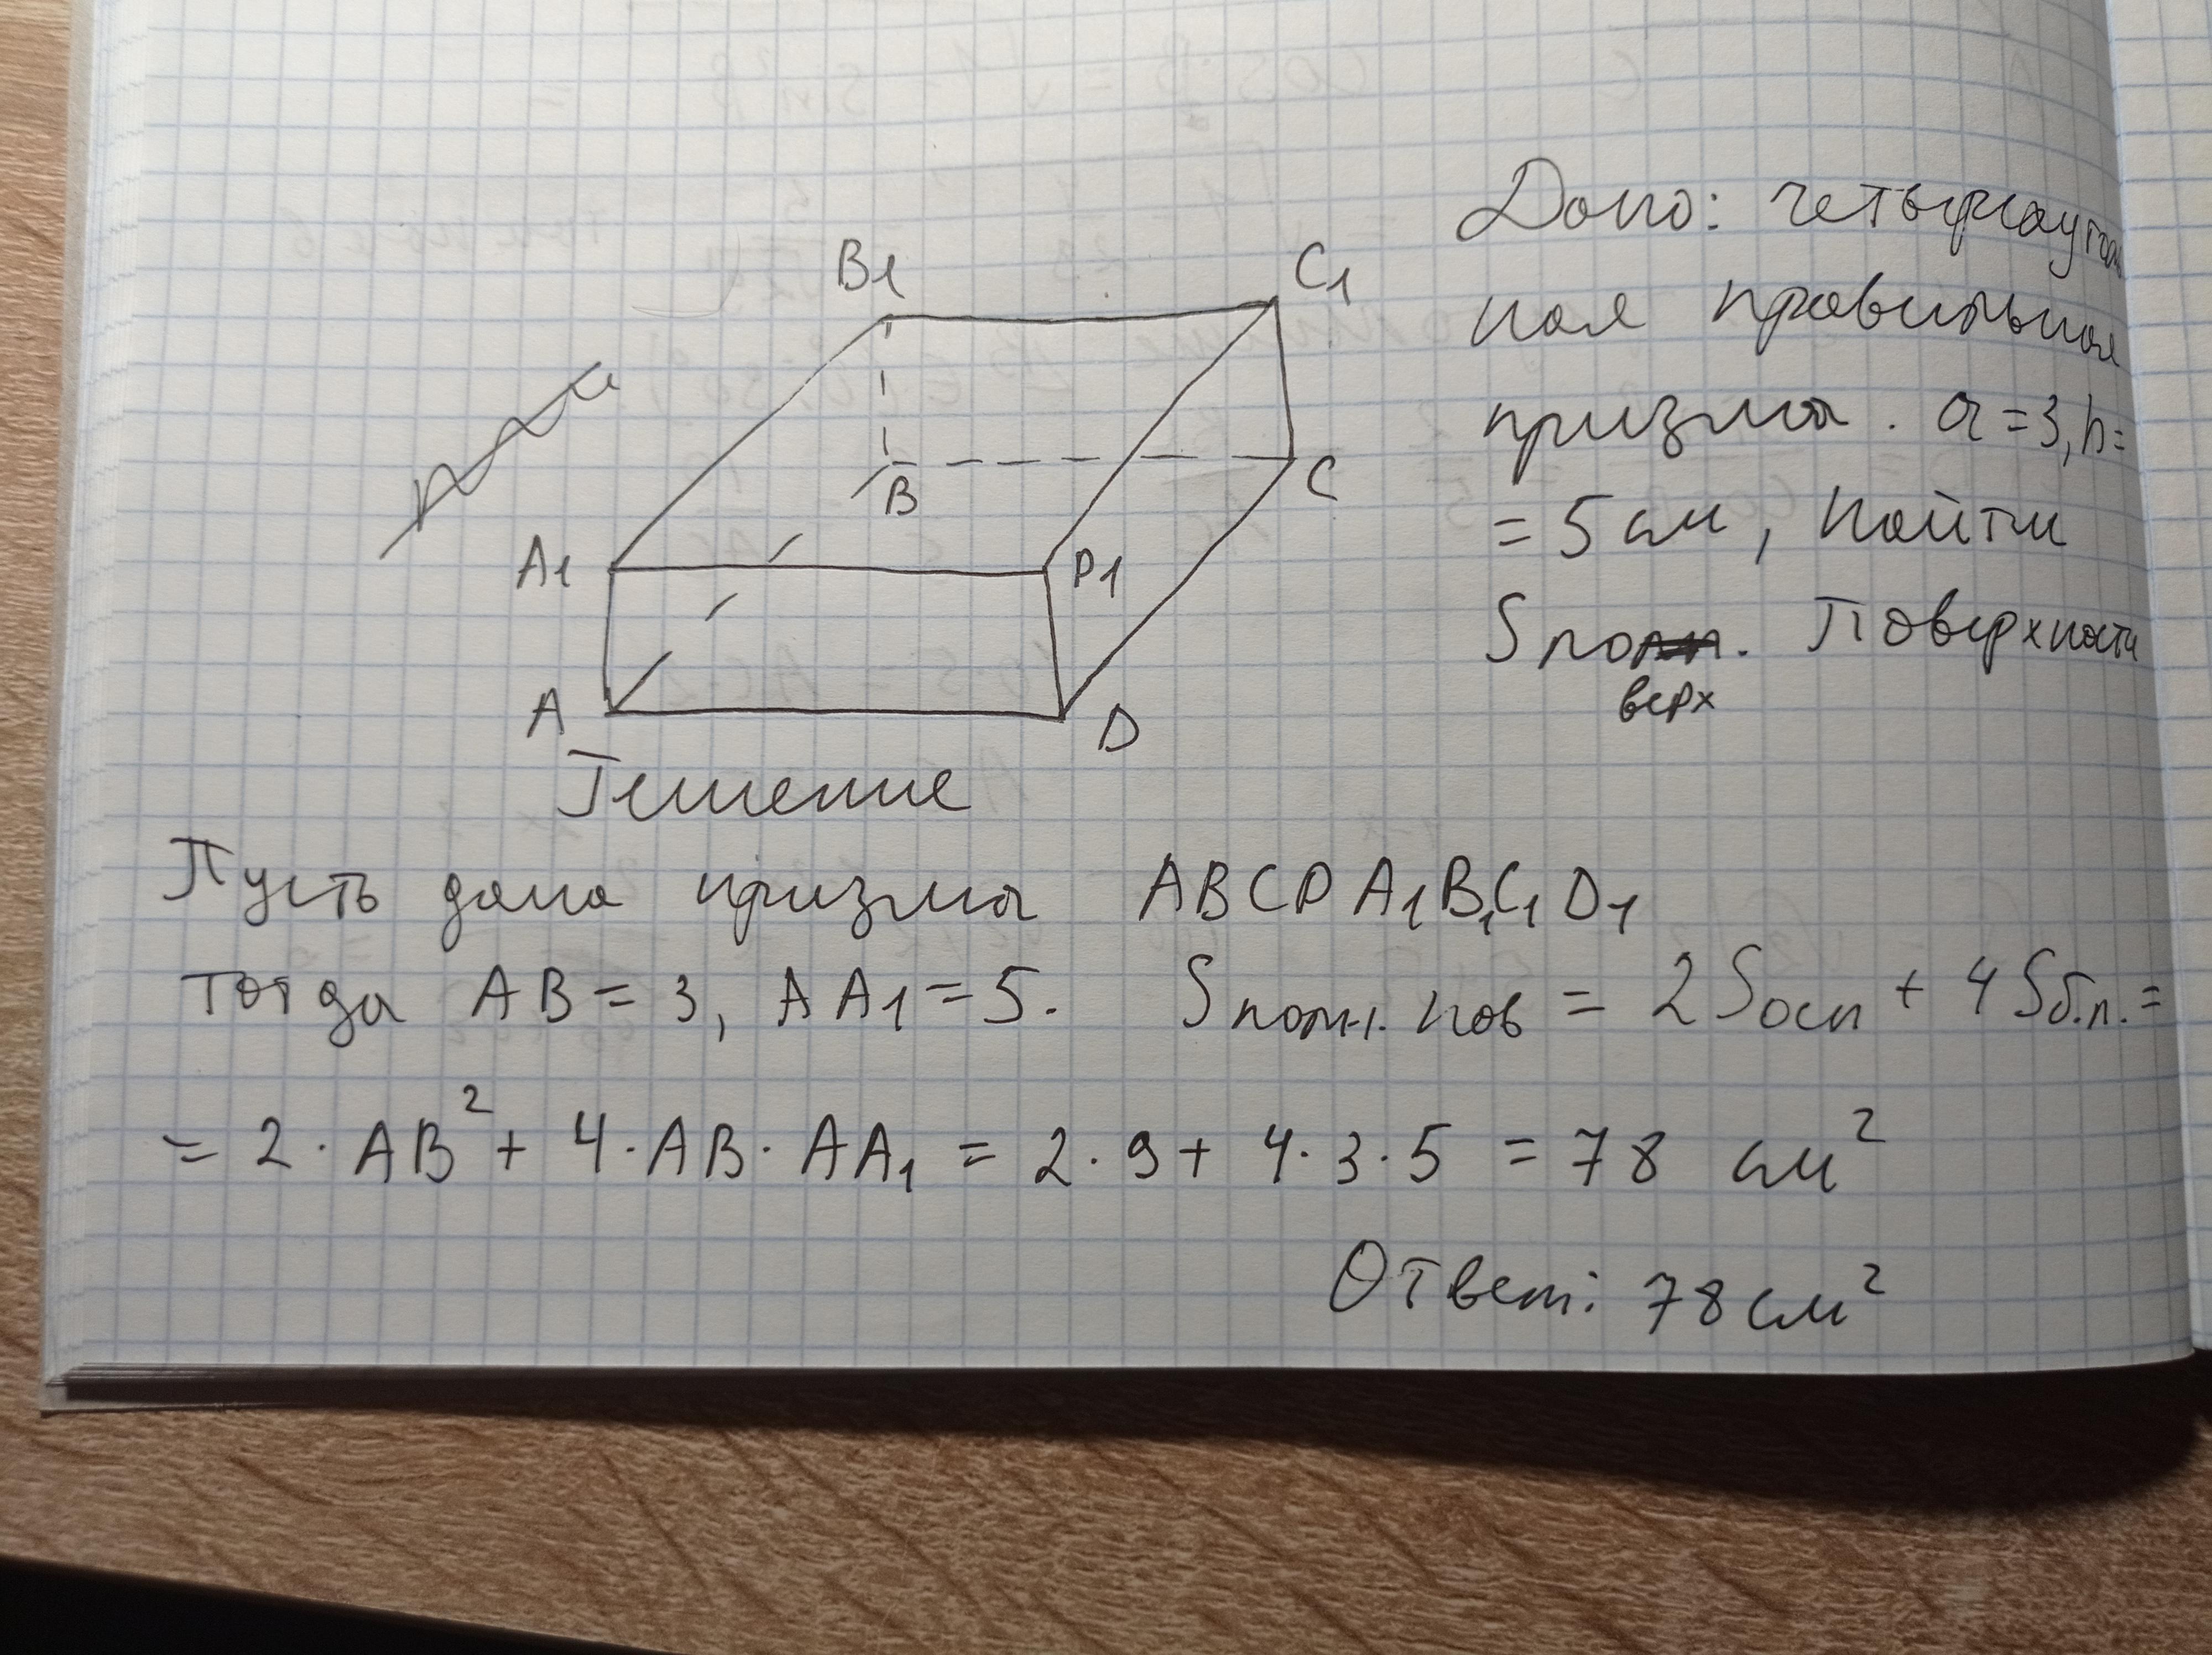 B1
C1
A1
D1
B
C
A
D
Дано: четырёхуголь
ная правильная
призма. a=3, h=
= 5 см, Найти
Sповерх. Поверхности
Решение
Пусть дана призма ABCD A1B1C1D1
тогда AB = 3, AA1 = 5. Sполн. пов = 2Sосн + 4Sб.п. =
= 2 · AB² + 4 · AB · AA1 = 2 · 9 + 4 · 3 · 5 = 78 см²
Ответ: 78 см²